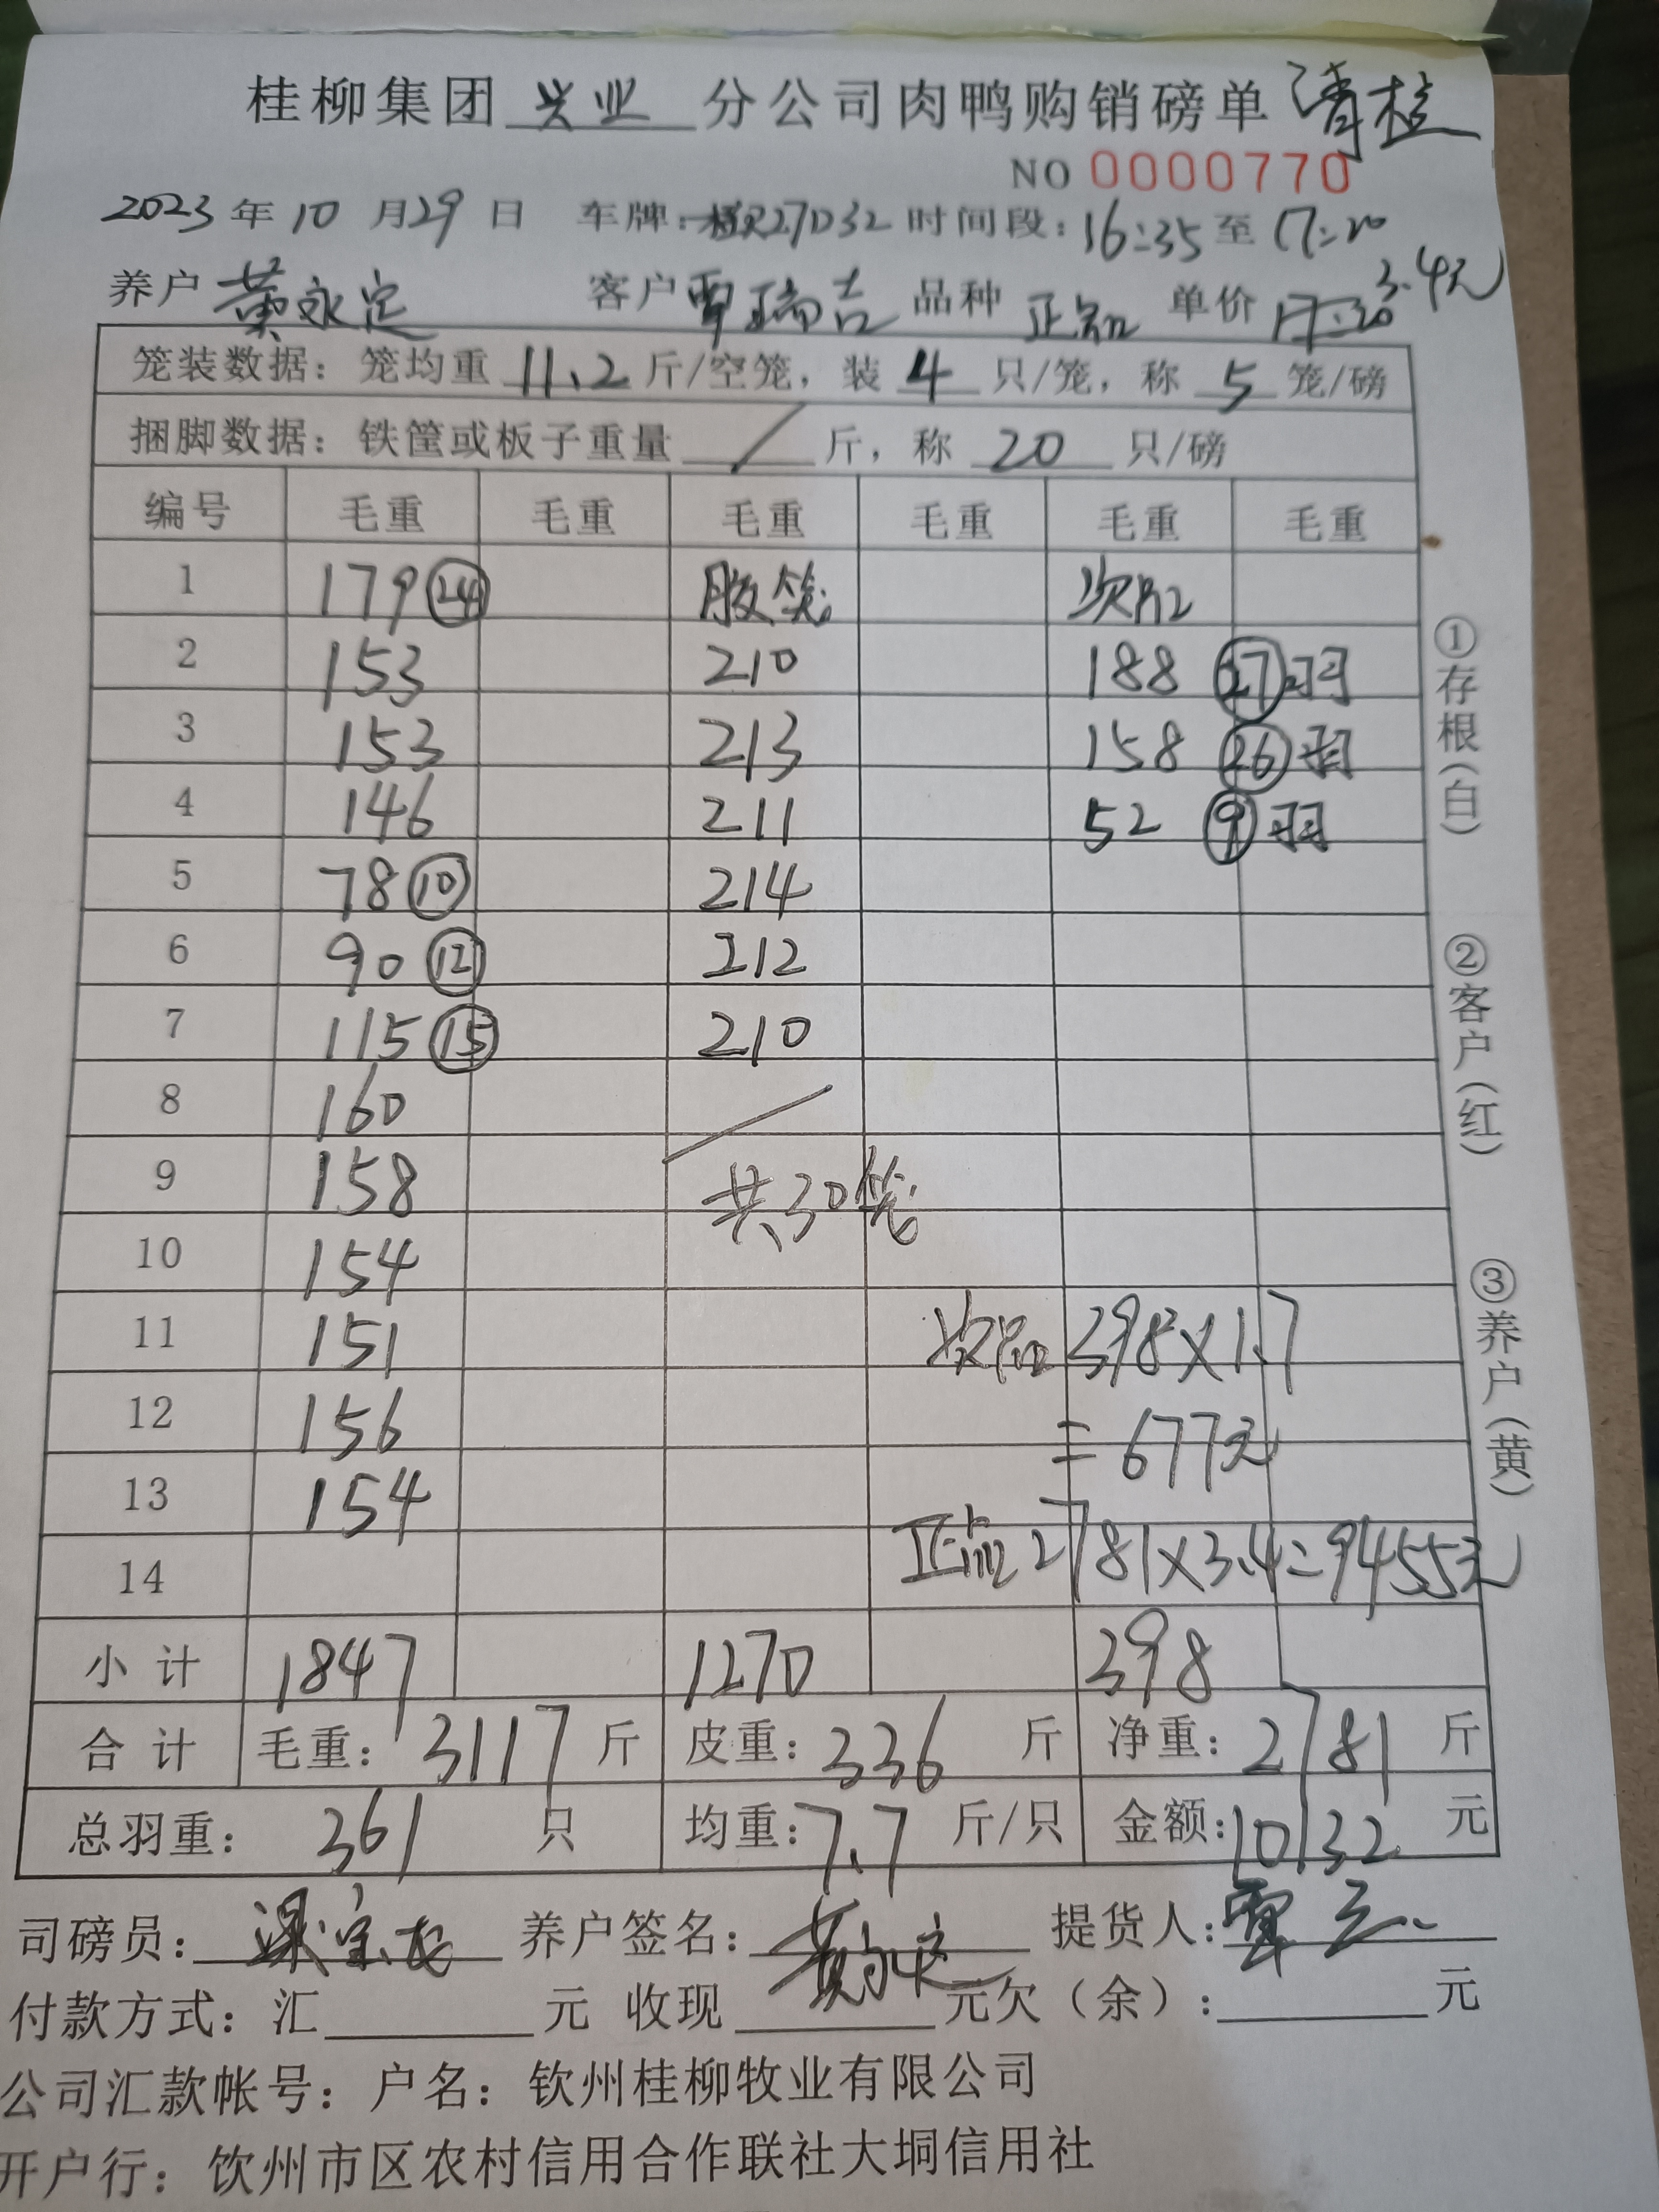 桂柳集团 兴业 分公司肉鸭购销磅单 清楂
NO 0000770
2023 年 10 月 29 日 车牌：桂27D32 时间段：16:35 至 17:20
养户 黄永定 客户 覃瑞吉 品种 正品 单价 3.4元
笼装数据：笼均重 11.2 斤/空笼，装 4 只/笼，称 5 笼/磅
捆脚数据：铁筐或板子重量 / 斤，称 20 只/磅
编号 毛重 毛重 毛重 毛重 毛重 毛重
1 179 (24) 胶笼 次品
2 153 210 188 (27)羽
3 153 213 158 (26)羽
4 146 211 52 (9)羽
5 78 (10) 214
6 90 (12) 212
7 115 (15) 210
8 160
9 158 共30笼
10 154
11 151 次品 398×1.7
12 156 =677元
13 154
14 正品 2781×3.4=9455元
小计 1847 1270 398
合计 毛重：3117 斤 皮重：336 斤 净重：2781 斤
总羽重：361 只 均重：7.7 斤/只 金额：10132 元
司磅员： 养户签名：黄永定 提货人：覃
付款方式：汇 元 收现 元欠（余）： 元
公司汇款帐号：户名：钦州桂柳牧业有限公司
开户行：饮州市区农村信用合作联社大垌信用社
①存根（白）
②客户（红）
③养户（黄）